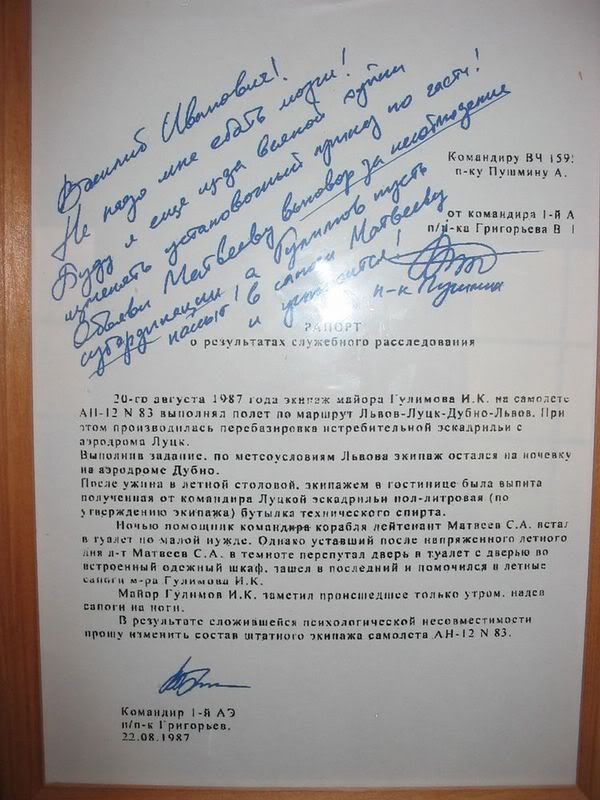 Василий Иванович!
Не надо мне ебать мозги!
Буду я еще из-за всякой хуйни
изменять установочный приказ по части!
Объяви Матвееву выговор за несоблюдение
субординации а Гулимов пусть
нассыт в сапоги Матвееву
и успокоится!
п-к Пушмин
Командиру ВЧ 159
п-ку Пушмину А.
от командира 1-й А
п/п-ка Григорьева В
РАПОРТ
о результатах служебного расследования
20-го августа 1987 года экипаж майора Гулимова И.К. на самолете
АН-12 N 83 выполнял полет по маршрут Львов-Луцк-Дубно-Львов. При
этом производилась перебазировка истребительной эскадрильи с
аэродрома Луцк.
Выполнив задание, по метеоусловиям Львова экипаж остался на ночевку
на аэродроме Дубно.
После ужина в летной столовой, экипажем в гостинице была выпита
полученная от командира Луцкой эскадрильи пол-литровая (по
утверждению экипажа) бутылка технического спирта.
Ночью помощник командира корабля лейтенант Матвеев С.А. встал
в туалет по малой нужде. Однако уставший после напряженного летного
дня л-т Матвеев С.А. в темноте перепутал дверь в туалет с дверью во
встроенный одежный шкаф, зашел в последний и помочился в летные
сапоги м-ра Гулимова И.К.
Майор Гулимов И.К. заметил происшедшее только утром, надев
сапоги на ноги.
В результате сложившейся психологической несовместимости
прошу изменить состав штатного экипажа самолета АН-12 N 83.
Командир 1-й АЭ
п/п-к Григорьев.
22.08.1987